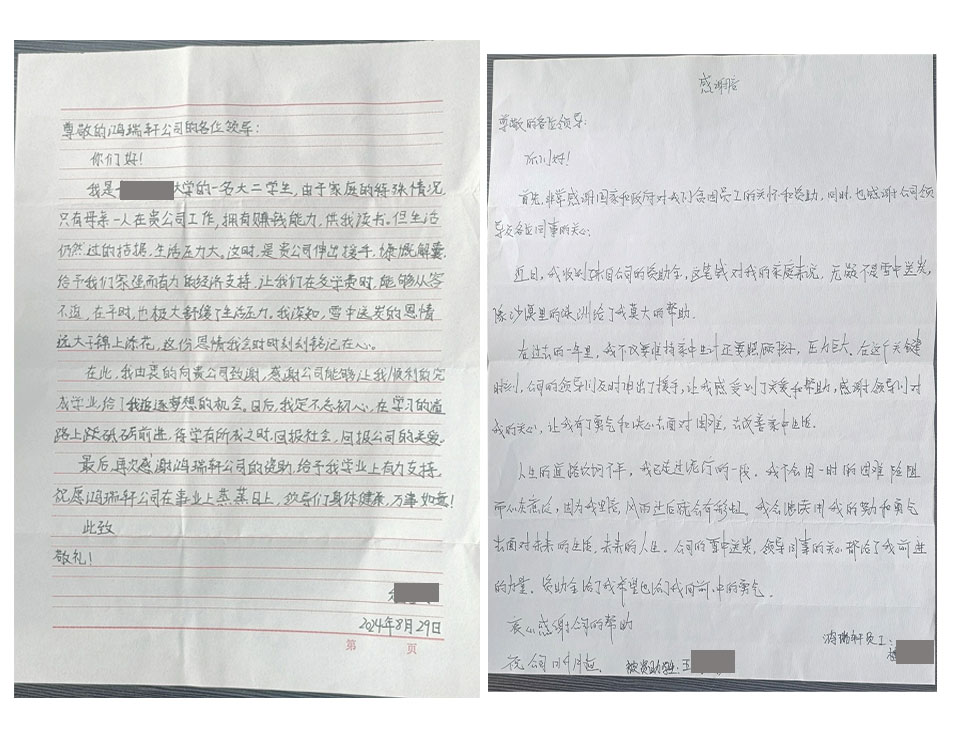 尊敬的鸿瑞轩公司的各位领导：
你们好！
我是 大学的一名大二学生，由于家庭的特殊情况
只有母亲一人在贵公司工作，拥有赚钱能力，供我读书。但生活
仍然过的拮据，生活压力大。这时，是贵公司伸出援手，慷慨解囊，
给予我们家强而有力的经济支持，让我们在交学费时，能够从容
不迫，在平时，也极大舒缓了生活压力。我深知，雪中送炭的恩情
远大于锦上添花，这份恩情我会时时刻刻铭记在心。
在此，我由衷的向贵公司致谢，感谢公司能够让我顺利的完
成学业，给了我追逐梦想的机会。日后，我定不忘初心，在学习的道
路上砥砺前进，待学有所成之时，回报社会，回报公司的关爱。
最后，再次感谢鸿瑞轩公司的资助，给予我学业上有力支持。
祝愿鸿瑞轩公司在事业上蒸蒸日上，领导们身体健康，万事如意！
此致
敬礼！
2024年8月29日
第 页
感谢信
尊敬的各位领导：
你们好！
首先，非常感谢国家和政府对我们贫困员工的关怀和资助，同时，也感谢公司领
导及各位同事的关心。
近日，我收到来自公司的资助金，这笔钱对我的家庭来说，无疑不是雪中送炭，
像沙漠里的绿洲给了我莫大的帮助。
在过去的一年里，我不仅要维持家中生计还要照顾孩子，压力巨大。在这个关键
时刻，公司的领导们及时伸出了援手，让我感受到了关爱和帮助，感谢领导们对
我的关心，让我有了勇气和决心去面对困难，去改善家中生活。
人生的道路坎坷不平，我已走过泥泞的一段。我不会因一时的困难险阻
而心灰意冷，因为我坚信，风雨过后就会有彩虹。我会继续用我的努力和勇气
去面对未来的生活，未来的人生。公司的雪中送炭，领导同事的关心都给了我前进
的力量。资助金给了我希望也给了我向前 中的勇气。
衷心感谢公司的帮助
祝公司
被资助 ：王
鸿瑞轩员工：